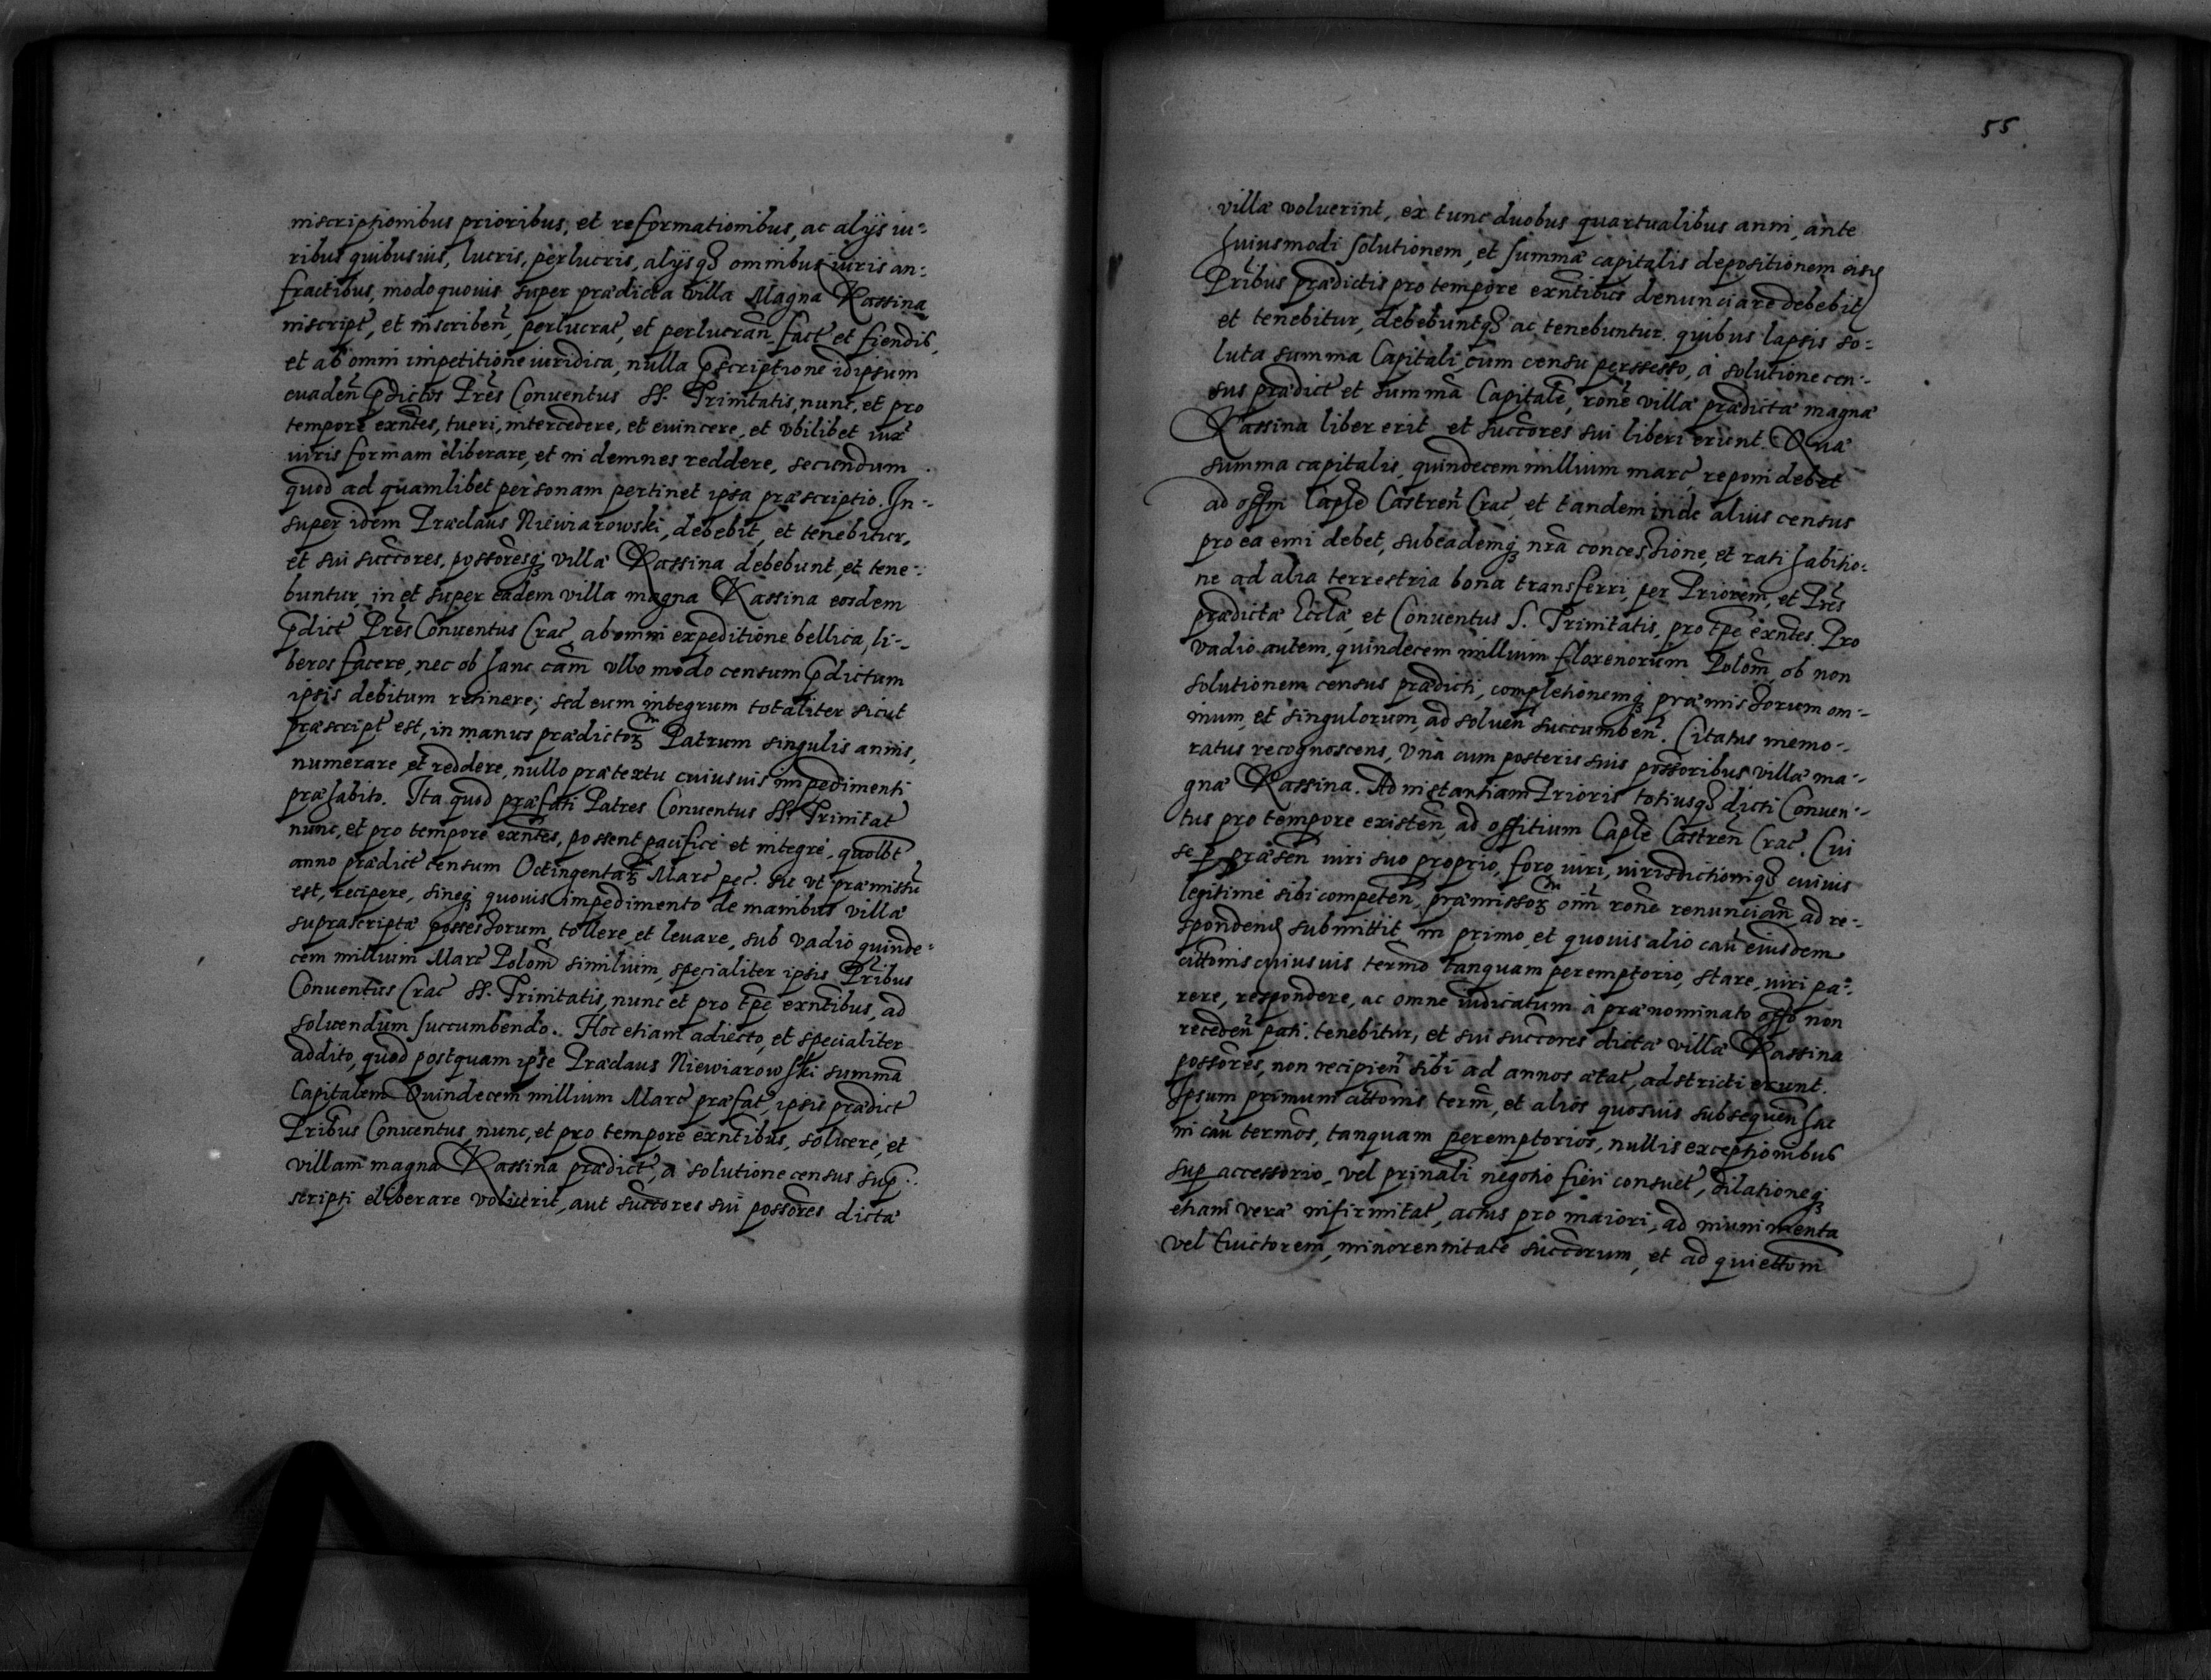 inscriptionibus prioribus, et reformationibus, ac alijs iu-
ribus quibusuis, lucris, perlucris, alijsq3 omnibus iuris an-
fractibus, modo quouis super prædicta villa Magna Kassina
inscript, et inscriben, perlucrat, et perlucran, fact et fiendis,
et ab omni impetitione iuridica, nulla pscriptione idipsum
euaden pdictos Pres Conuentus SS. Trinitatis, nunc, et pro
tempore exntes, tueri, intercedere, et euincere, et vbilibet iux
iuris formam eliberare, et indemnes reddere, secundum
quod ad quamlibet personam pertinet ipsa præscriptio. In-
super idem Præclaus Niewiarowski, debebit, et tenebitur,
et sui succores, possoresq3 villæ Kassina debebunt, et tene-
buntur, in et super eadem villa magna Kassina eosdem
pdict Pres Conuentus Crac, ab omni expeditione bellica, li-
beros facere, nec ob hanc cam vllo modo censum pdictum
ipsis debitum retinere; sed eum integrum totaliter sicut
præscript est, in manus prædictor Patrum singulis annis,
numerare, et reddere, nullo prætextu cuiusuis impedimenti
præhabito. Ita quod præfati Patres Conuentus SS. Trinitat
nunc, et pro tempore exntes, possent pacifice et integre, quolbt
anno prædict censum Octingentar Marc pec. sic vt præmissu
est, recipere, sineq3 quouis impedimento de manibus villæ
suprascriptæ possessorum, tollere et leuare, sub vadio quinde-
cem millium Marc Polom similium, specialiter ipsis Pribus
Conuentus Crac SS. Trinitatis, nunc et pro tpe exntibus, ad
soluendum succumbendo. Hoc etiam adiecto, et specialiter
addito, quod postquam ipse Præclaus Niewiarowski summa
Capitalem Quindecem millium Marc præfat, ipsis prædict
Pribus Conuentus, nunc, et pro tempore exntibus, soluere, et
villam magna Kassina prædict, a solutione census sup-
scripti eliberare voluerit, aut succores sui possores dictæ
55
villæ voluerint, ex tunc duobus quartualibus anni, ante
huiusmodi solutionem, et summæ capitalis depositionem eisd
Pribus prædictis pro tempore exntibus denunciare debebit
et tenebitur, debebuntq3 ac tenebuntur. quibus lapsis so-
luta summa Capitali cum censu persesso, a solutione cen-
sus prædict et summa Capitale, rone villæ prædictæ magnæ
Kassina liber erit et succores sui liberi erunt. Quæ
summa capitalis, quindecem millium marc, reponi debet
ad offm Caple Castren Crac, et tandem inde alius census
pro ea emi debet, sub eademq3 nra concessione, et ratihabitio-
ne ad alia terrestria bona transferri, per Priorem, et Pres
prædictæ Eccle, et Conuentus S. Trinitatis, pro tpe exntes. Pro
vadio autem, quindecem millium florenorum Polom, ob non
solutionem census prædicti, completionemq3 præmissorum om-
nium, et singulorum, ad soluen succumben. Citatus memo-
ratus recognoscens, vna cum posteris suis possoribus villæ ma-
gnæ Kassina. Ad instantiam Prioris totiusq3 dicti Conuen-
tus pro tempore existen, ad offitium Caple Castren Crac. Cui
se p præsen iuri suo proprio, foro iuri, iurisdictioniq3 cuiuis
legitime sibi competen, præmissor oim rone renuncian, ad re-
spondend submittit in primo, et quouis alio cau eiusdem
citonis cuiusuis termo tanquam peremptorio, stare, iuri pa-
rere, respondere, ac omne iudicatum à prænominato offo non
receden pati. tenebitur, et sui succores dictæ villæ Kassina
possores, non recipien sibi ad annos ætat, adstricti erunt.
Ipsum primum cittonis term, et alios quosuis subsequen hac
in cau termos, tanquam peremptorios, nullis exceptionibus
sup accessorio, vel prinali negotio fieri consuet, dilationeq3
etiam vera infirmitat, actus pro maiori, ad munimenta
vel Euictorem, minorennitate succorum, et ad quiettom